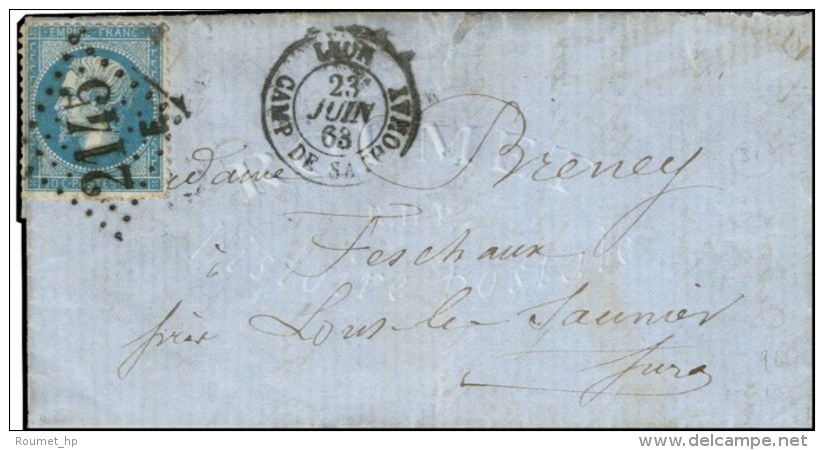 EMPIRE FRANC
2145
E
20 C
LYON
23
JUIN
63
CAMP DE SATHONAY
Madame Breney
à
Feschaux
près Lons-le-Saunier
Jura
ROUMET
Histoire Postale
Roumet_hp
www.delcampe.net